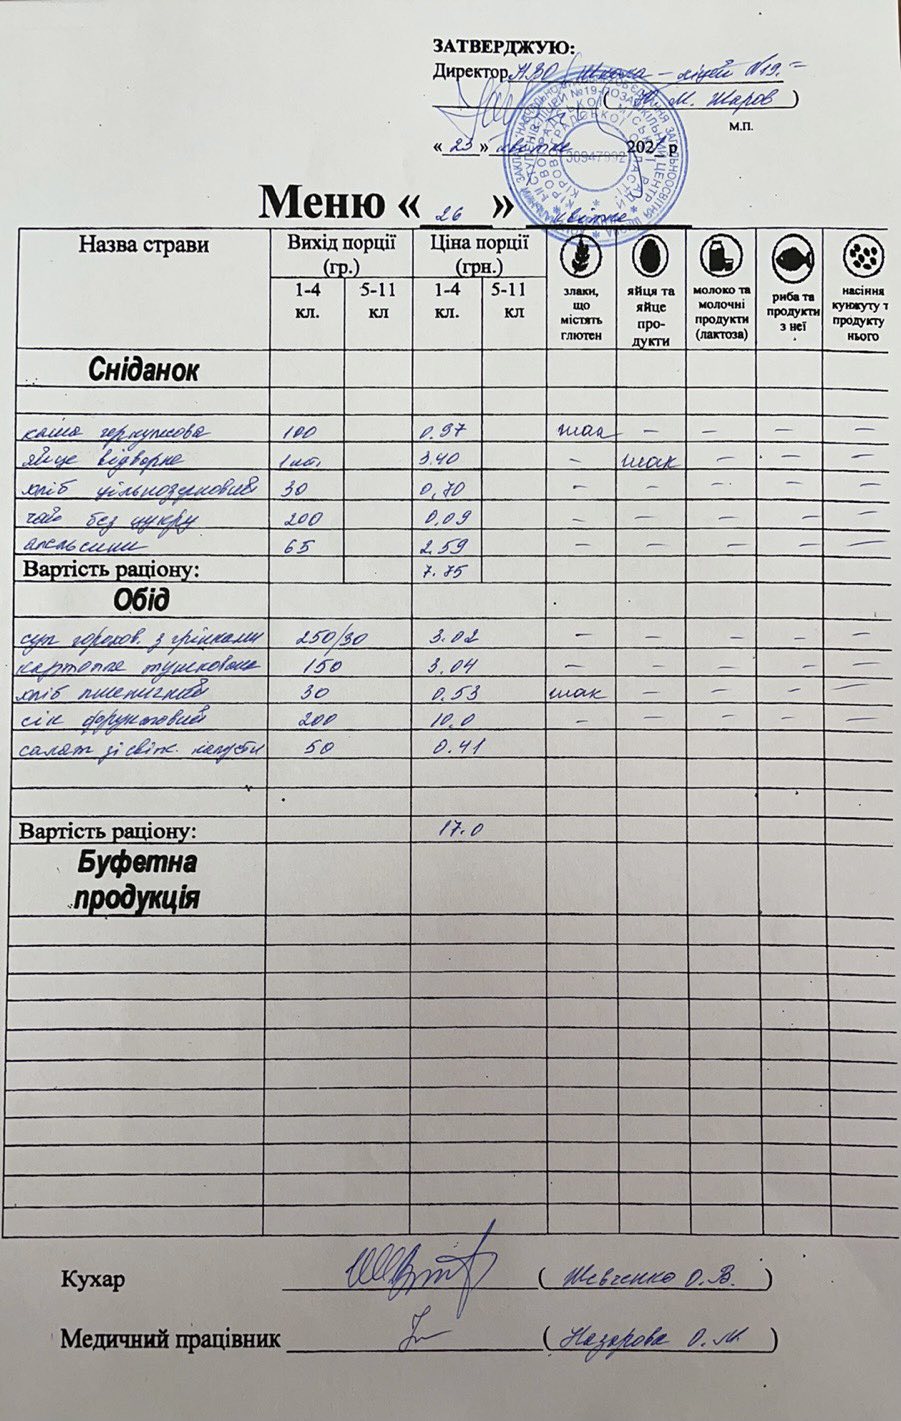 ЗАТВЕРДЖУЮ:
Директор НВО Школа – ліцей №19
( М. Жаров )
м.п.
« 23 » квітня 202 р
Меню « 26 » квітня
Назва страви Вихід порції (гр.) Ціна порції (грн.) злаки, що містять глютен яйця та яйце про-дукти молоко та молочні продукти (лактоза) риба та продукти з неї насіння кунжуту т продукту нього
1-4 кл. 5-11 кл 1-4 кл. 5-11 кл
Сніданок
каша геркулесова 100 0.97 так – – – –
яйце відварне 1шт. 3.40 – так – – –
хліб цільнозерновий 30 0,70 – – – – –
чай без цукру 200 0.09 – – – – –
апельсини 65 2.59 – – – – –
Вартість раціону: 7.75
Обід
суп горохов. з грінками 250/30 3.02 – – – – –
картопля тушкована 150 3.04 – – – – –
хліб пшеничний 30 0.53 так – – – –
сік фруктовий 200 10.0 – – – – –
салат зі свіж. капусти 50 0.41
Вартість раціону: 17.0
Буфетна продукція
Кухар ( Шевченко О.В. )
Медичний працівник ( Назарова О.М. )